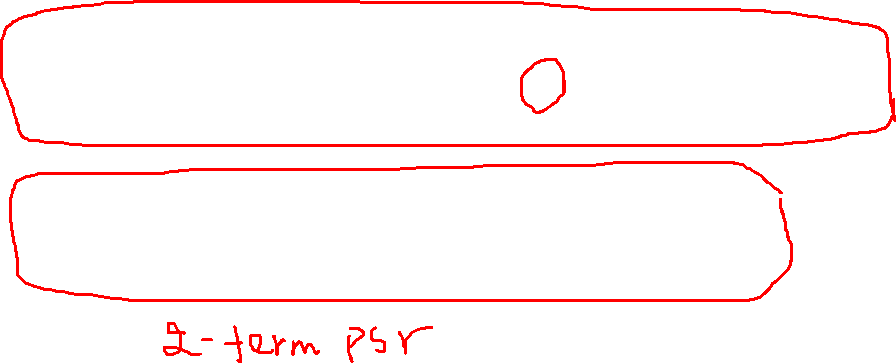 2-term psr